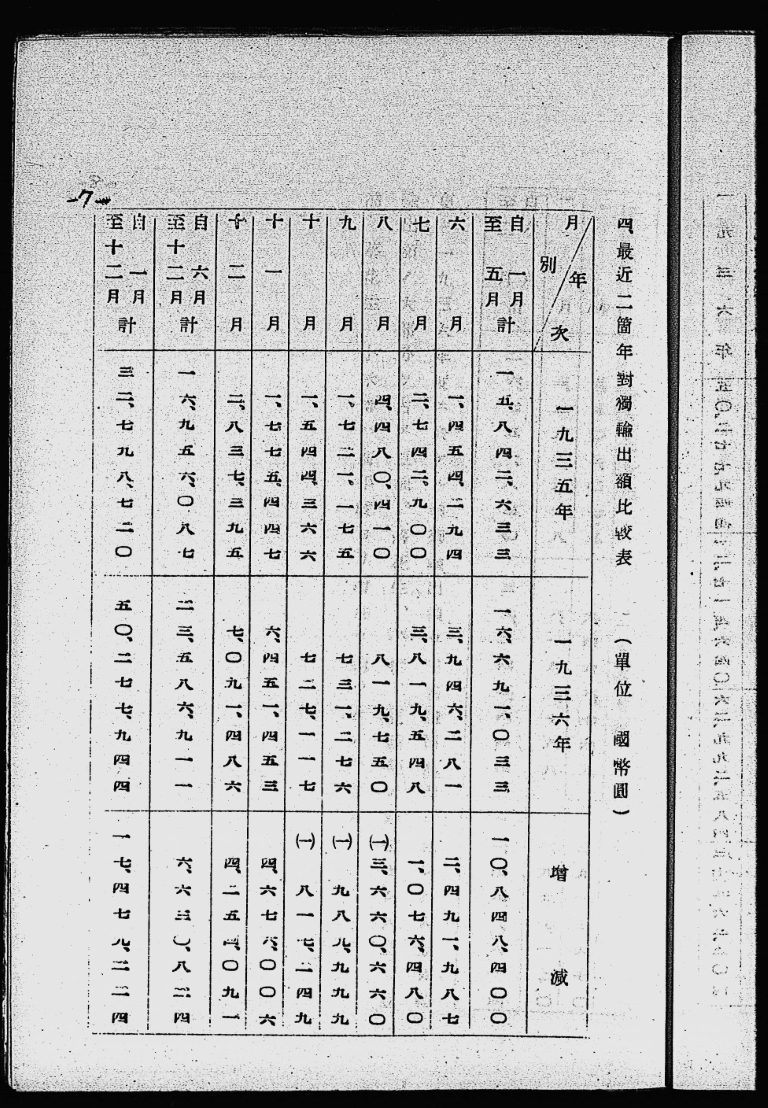 四、最近二箇年對獨輸出額比較表 （單位 國幣圓）
月別 年次 一九三五年 一九三六年 增減
自一月至五月計 一五、八四二、六三三 一六、六九一、〇三三 一〇、八四八、四〇〇
六月 一、四五四、二九四 三、九四六、二八一 二、四九一、九八七
七月 二、七四二、九〇〇 三、八一九、五四八 一、〇七六、四八〇
八月 四、四八〇、四一〇 八一九、七五〇 (一)三、六六〇、六六〇
九月 一、七二一、一七五 七三一、二七六 (一)九八九、九九九
十月 一、五四四、三六六 七二七、一一七 (一)八一七、二四九
十一月 一、七七五、四四七 六、四五一、四五三 四、六七六、〇〇六
十二月 二、八三七、三九五 七、〇九一、四八六 四、二五四、〇九一
自六月至十二月計 一六、九五六、〇八七 二三、五八六、九一一 六、六三〇、八二四
自一月至十二月計 三二、七九八、七二〇 五〇、二七七、九四四 一七、四七九、二二四
-7-